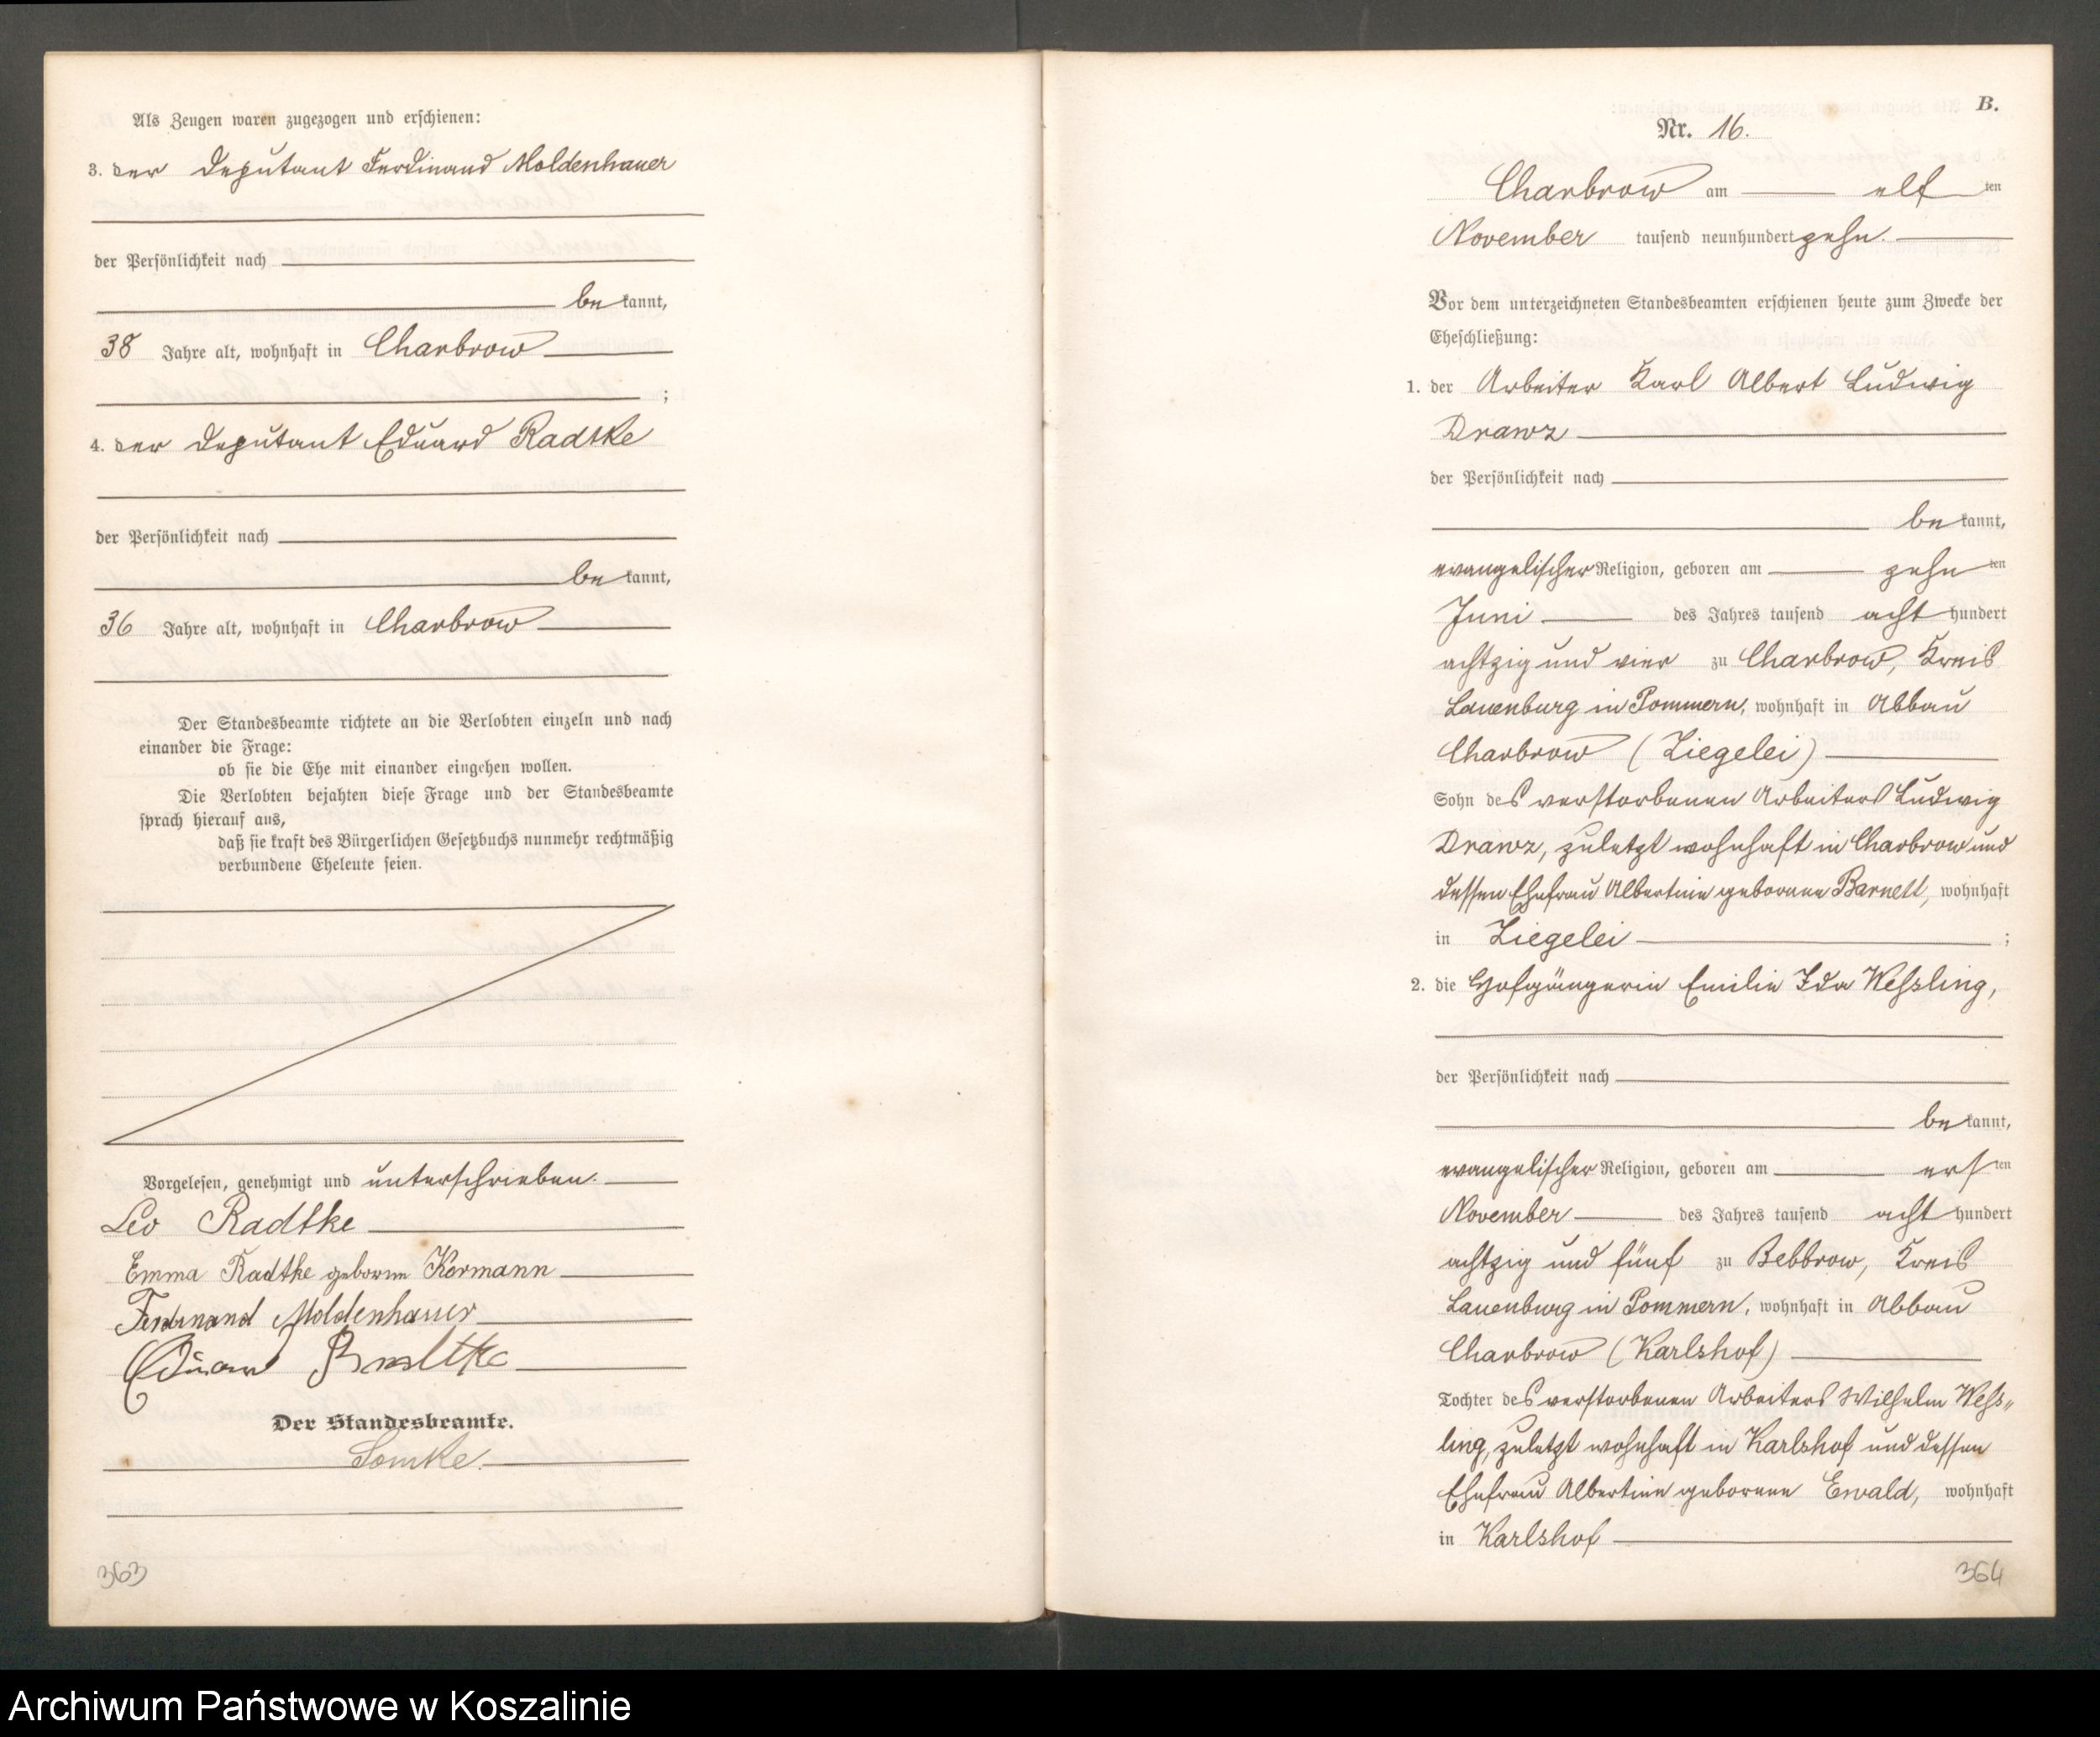 Als Zeugen waren zugezogen und erschienen:
3. der Deputant Ferdinand Moldenhauer
der Persönlichkeit nach
be kannt,
38 Jahre alt, wohnhaft in Charbrow
;
4. der Deputant Eduard Radtke
der Persönlichkeit nach
be kannt,
36 Jahre alt, wohnhaft in Charbrow
Der Standesbeamte richtete an die Verlobten einzeln und nach
einander die Frage:
ob sie die Ehe mit einander eingehen wollen.
Die Verlobten bejahten diese Frage und der Standesbeamte
sprach hierauf aus,
daß sie kraft des Bürgerlichen Gesetzbuchs nunmehr rechtmäßig
verbundene Eheleute seien.
Vorgelesen, genehmigt und unterschrieben.
Leo Radtke
Emma Radtke geborne Kormann
Ferdinand Moldenhauer
Eduard Radtke
Der Standesbeamte.
363
B.
Nr. 16.
Charbrow am elf ten
November tausend neunhundert zehn.
Vor dem unterzeichneten Standesbeamten erschienen heute zum Zwecke der
Eheschließung:
1. der Arbeiter Karl Albert Ludwig
Drawz
der Persönlichkeit nach
be kannt,
evangelischer Religion, geboren am zehn ten
Juni des Jahres tausend acht hundert
achtzig und vier zu Charbrow, Kreis
Lauenburg in Pommern, wohnhaft in Abbau
Charbrow (Ziegelei)
Sohn des verstorbenen Arbeiters Ludwig
Drawz, zuletzt wohnhaft in Charbrow und
dessen Ehefrau Albertine geborene Barnell, wohnhaft
in Ziegelei ;
2. die Hofgängerin Emilie Ida Weßling,
der Persönlichkeit nach
be kannt,
evangelischer Religion, geboren am ers ten
November des Jahres tausend acht hundert
achtzig und fünf zu Bebbrow, Kreis
Lauenburg in Pommern, wohnhaft in Abbau
Charbrow (Karlshof)
Tochter des verstorbenen Arbeiters Wilhelm Weß„
ling, zuletzt wohnhaft in Karlshof und dessen
Ehefrau Albertine geborene Ewald, wohnhaft
in Karlshof
364
Archiwum Państwowe w Koszalinie